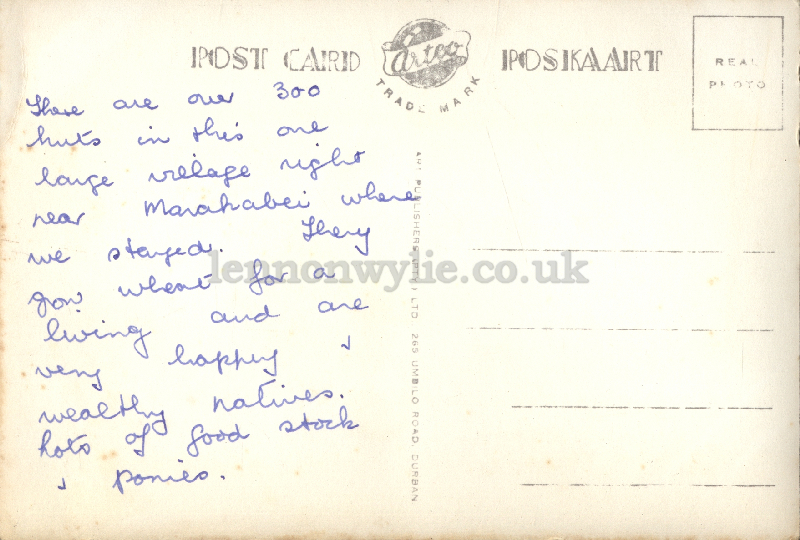 POST CARD
Artco
TRADE MARK
POSKAART
REAL
PHOTO
There are over 300
huts in this one
large village right
near Marakabei where
we stayed. They
grow wheat for a
living and are
very happy &
wealthy natives.
Lots of good stock
& ponies.
ART PUBLISHERS (PTY.) LTD. 265 UMBILO ROAD, DURBAN
lennonwylie.co.uk